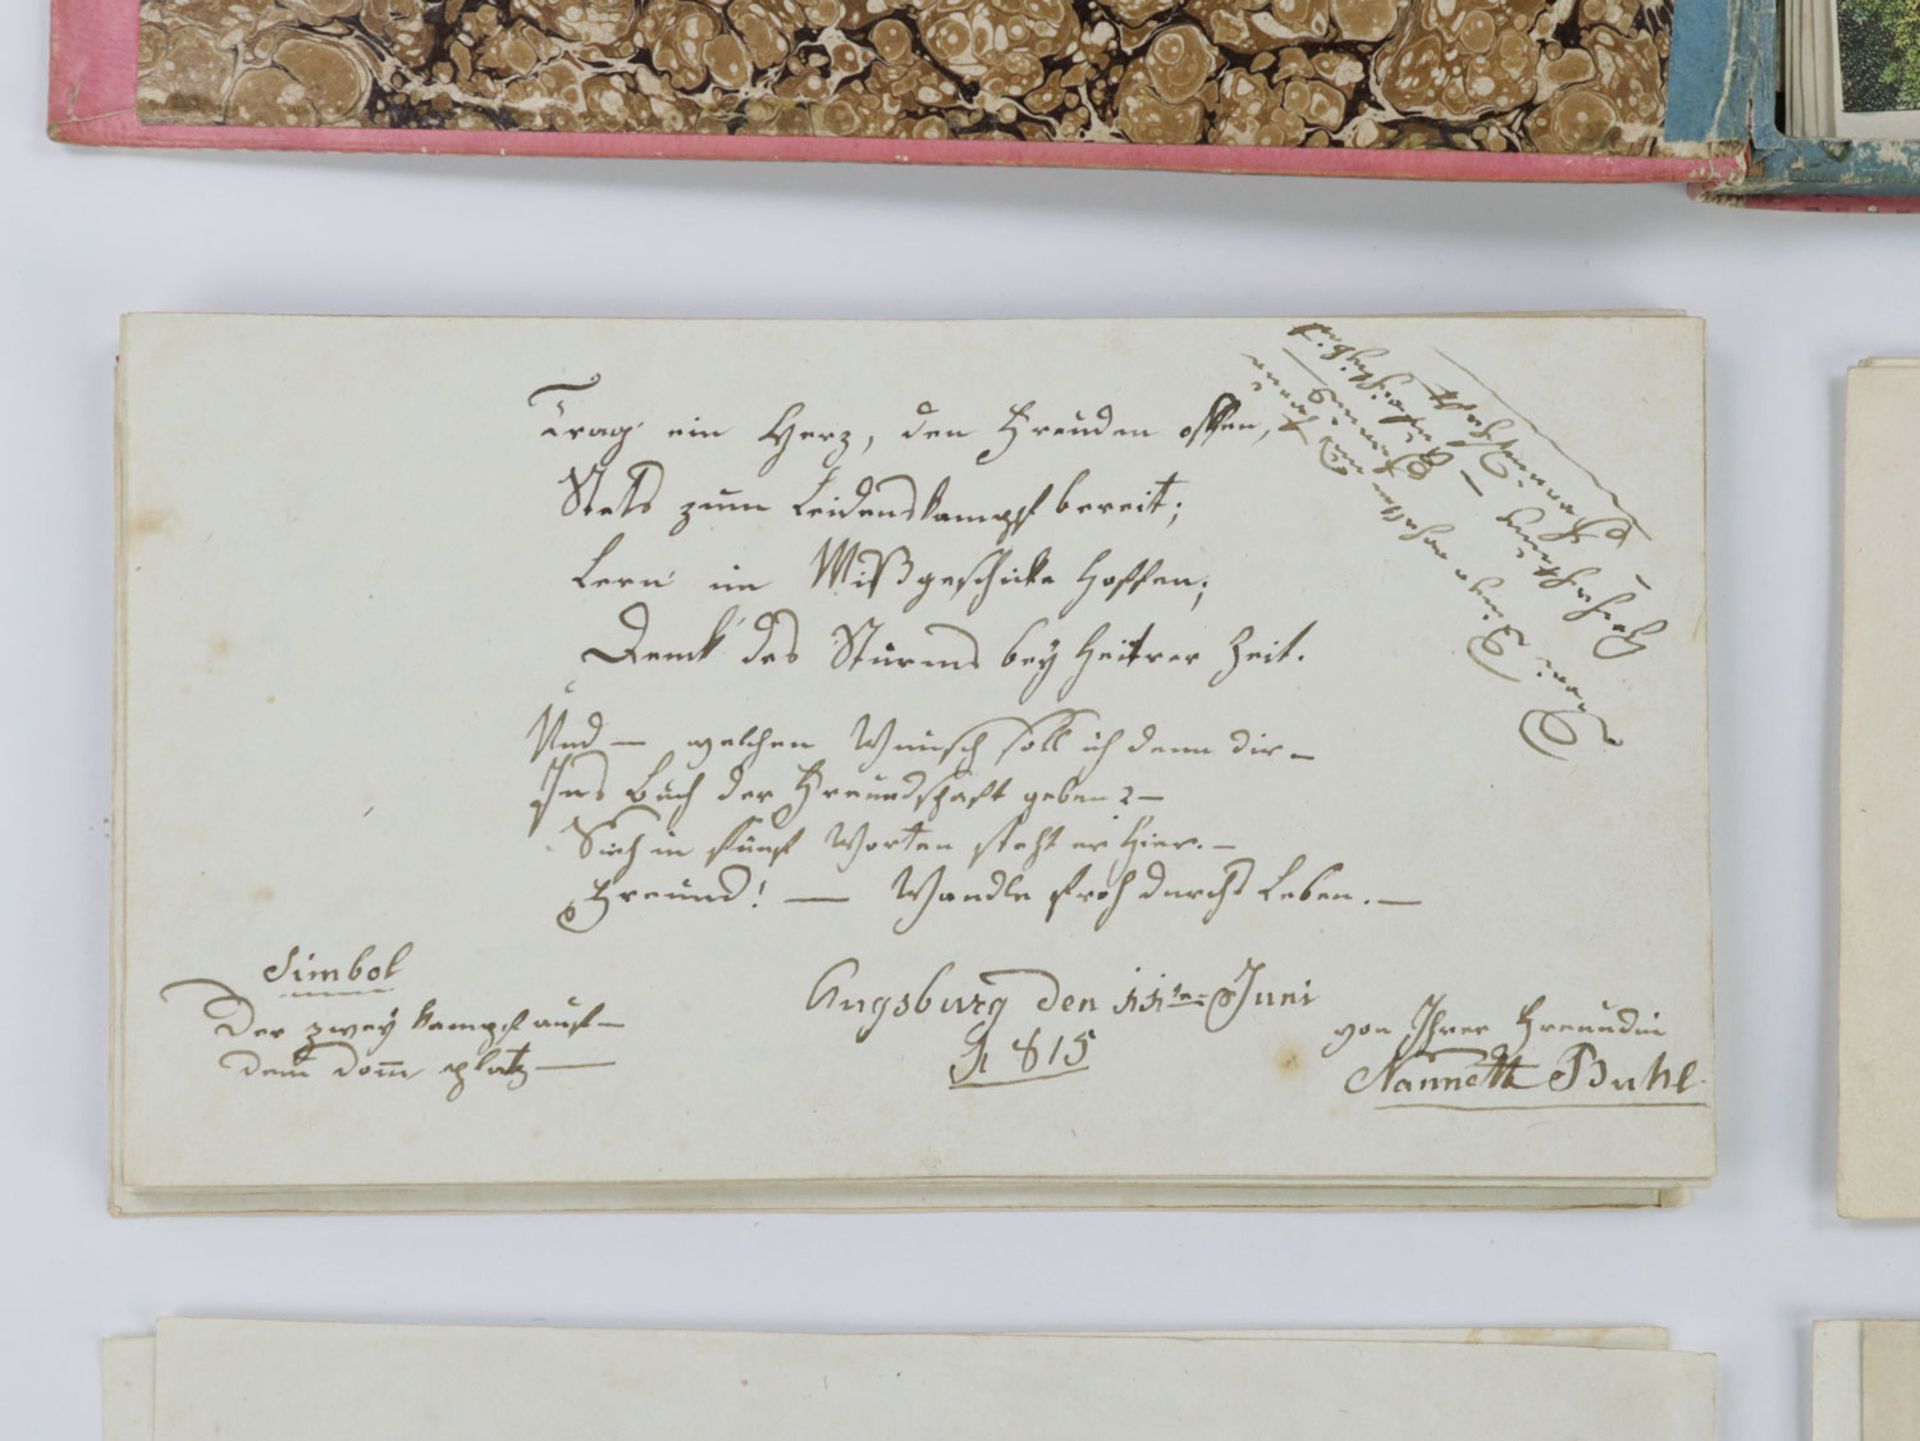 Trag' ein Herz, den Freuden offen,
Stets zum Leidenskampf bereit;
Lern' im Mißgeschicke hoffen;
Denk' des Sturms bey heitrer Zeit.
Und — welchen Wunsch soll ich denn dir —
Ins Buch der Freundschaft geben? —
Sieh in fünf Worten steht er hier. —
Freund! — Wandle froh durchs Leben. —
Simbol
Der zwey kampf auf —
dem dom platz —
Augsburg den 11ten Juni
1815
von Ihrer Freundin
Nannette Buhl